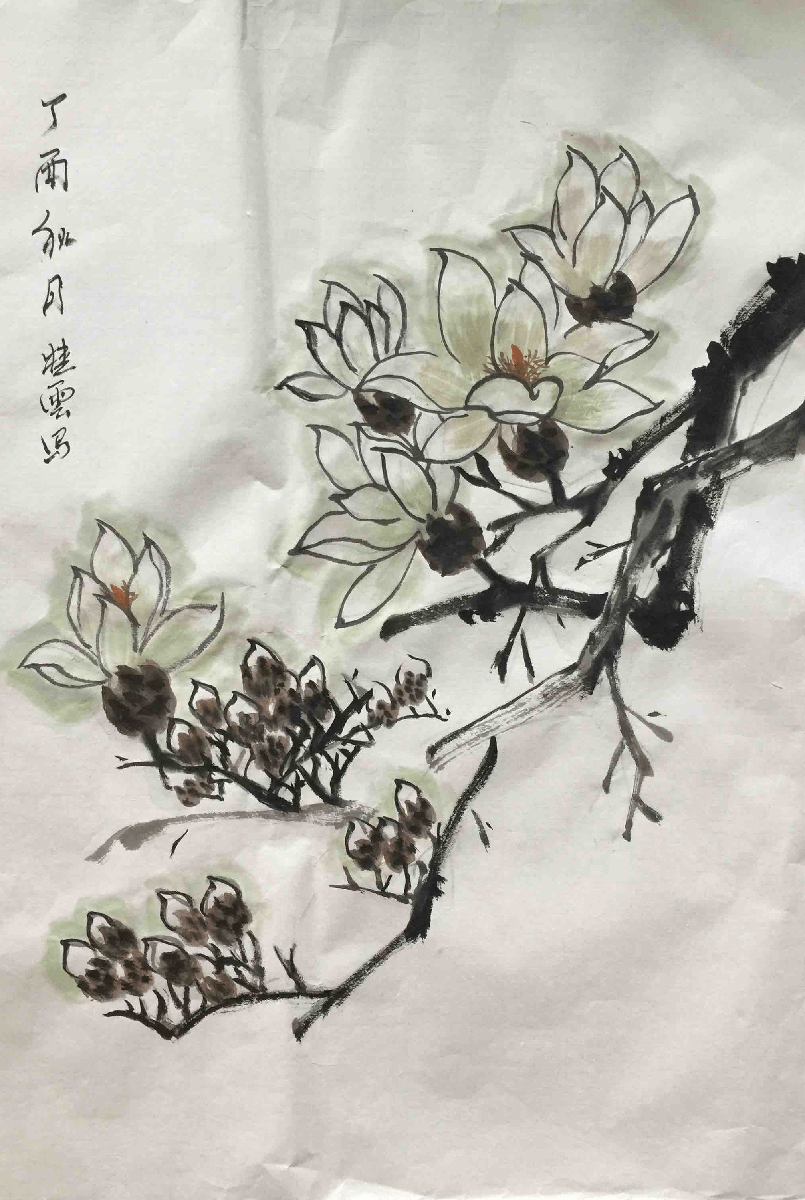 丁酉秋月桂雲写